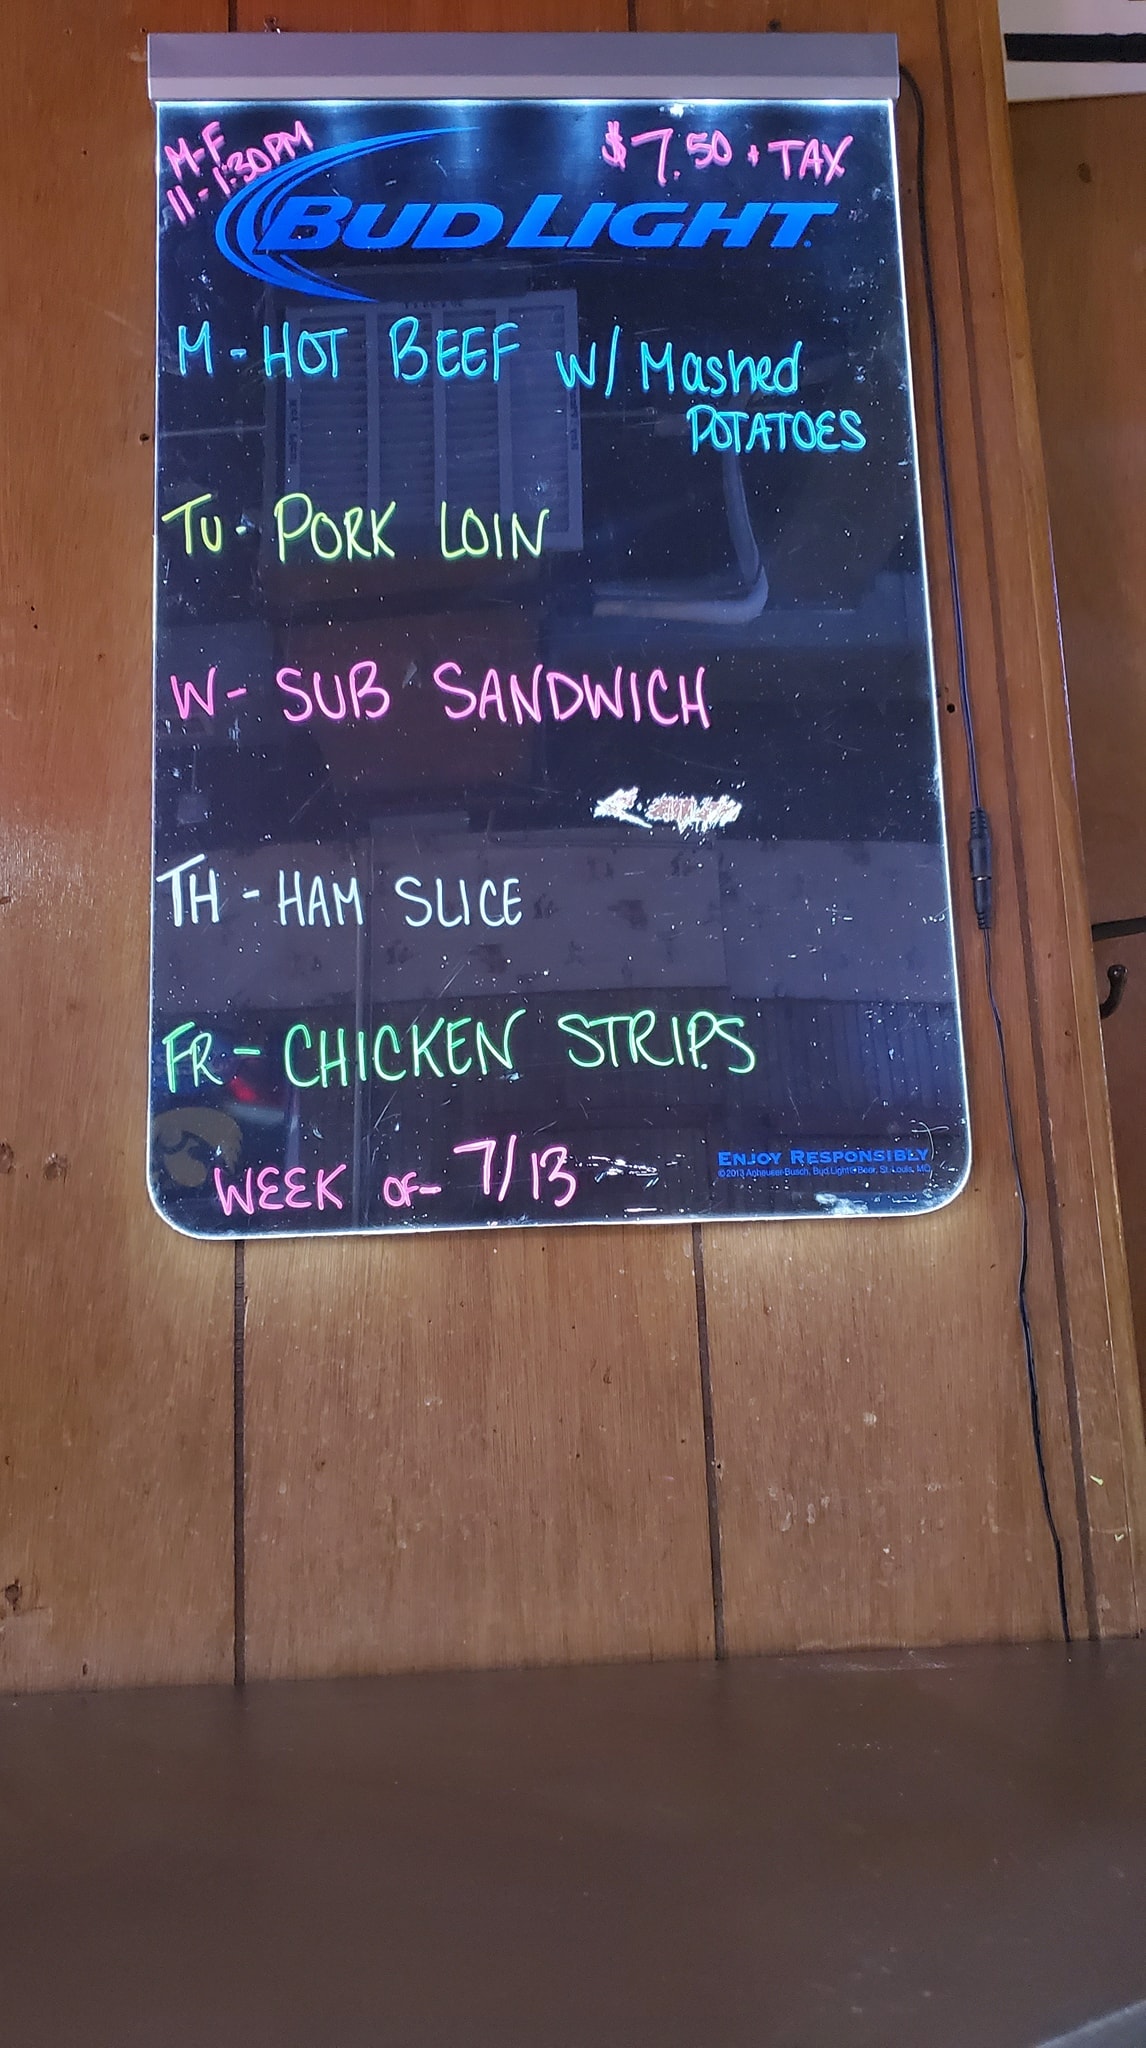 M-F
11-1:30PM
$7.50 + TAX
BUD LIGHT
M - HOT BEEF w/ Mashed
POTATOES
TU - PORK LOIN
W - SUB SANDWICH
TH - HAM SLICE
FR - CHICKEN STRIPS
WEEK OF - 7/13
ENJOY RESPONSIBLY
©2013 Anheuser-Busch, Bud Light® Beer, St. Louis, MO